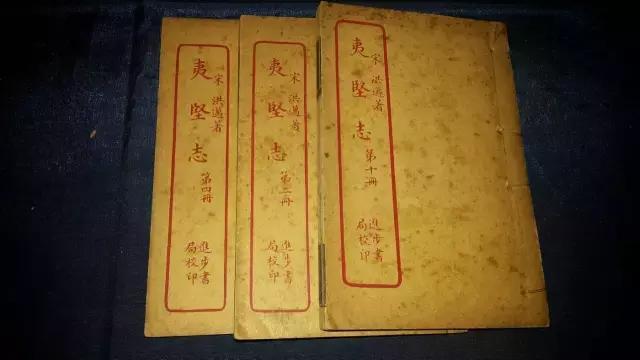 宋 洪邁著
夷堅志
第四冊
進步書
局校印
宋 洪邁著
夷堅志
第二冊
進步書
局校印
宋 洪邁著
夷堅志
第十冊
進步書
局校印